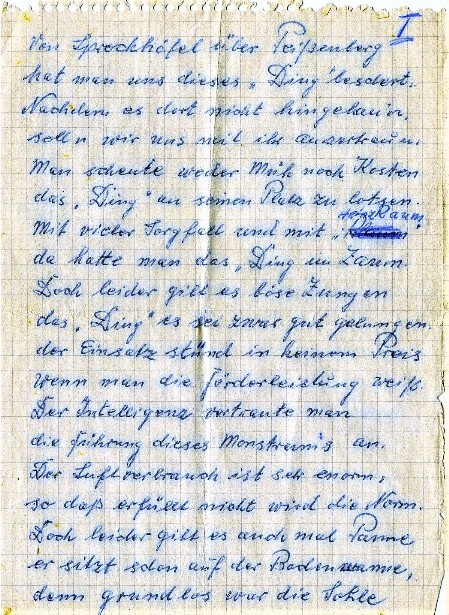 I
Von Sprockhöfel über Peißenberg
hat man uns dieses „Ding" beschert.
Nachdem es dort nicht hingehau'n,
soll'n wir uns mit ihr anvertrau'n.
Man scheute weder Müh noch Kosten
das „Ding" an seinen Platz zu lotsen.
Mit vieler Sorgfalt und mit
da hatte man das „Ding" im Zaum
Doch leider gibt es böse Zungen
das „Ding" es sei zwar gut gelungen.
der Einsatz stünd in keinem Preis
wenn man die Förderleistung weiß.
Der Intelligenz vertraute man
die Führung dieses Monstrums an.
Der Luftverbrauch ist sehr enorm,
so daß erfüllt nicht wird die Norm.
Doch leider gibt es auch mal Panne
er sitzt schon auf der Badewanne,
denn grundlos war die Sohle